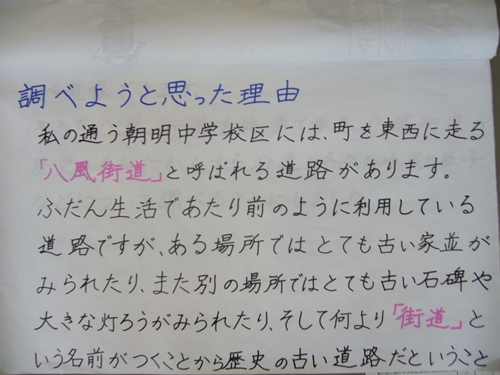 調べようと思った理由
私の通う朝明中学校区には、町を東西に走る
「八風街道」と呼ばれる道路があります。
ふだん生活であたり前のように利用している
道路ですが、ある場所ではとても古い家並が
みられたり、また別の場所ではとても古い石碑や
大きな灯ろうがみられたり、そして何より「街道」と
いう名前がつくことから歴史の古い道路だということ